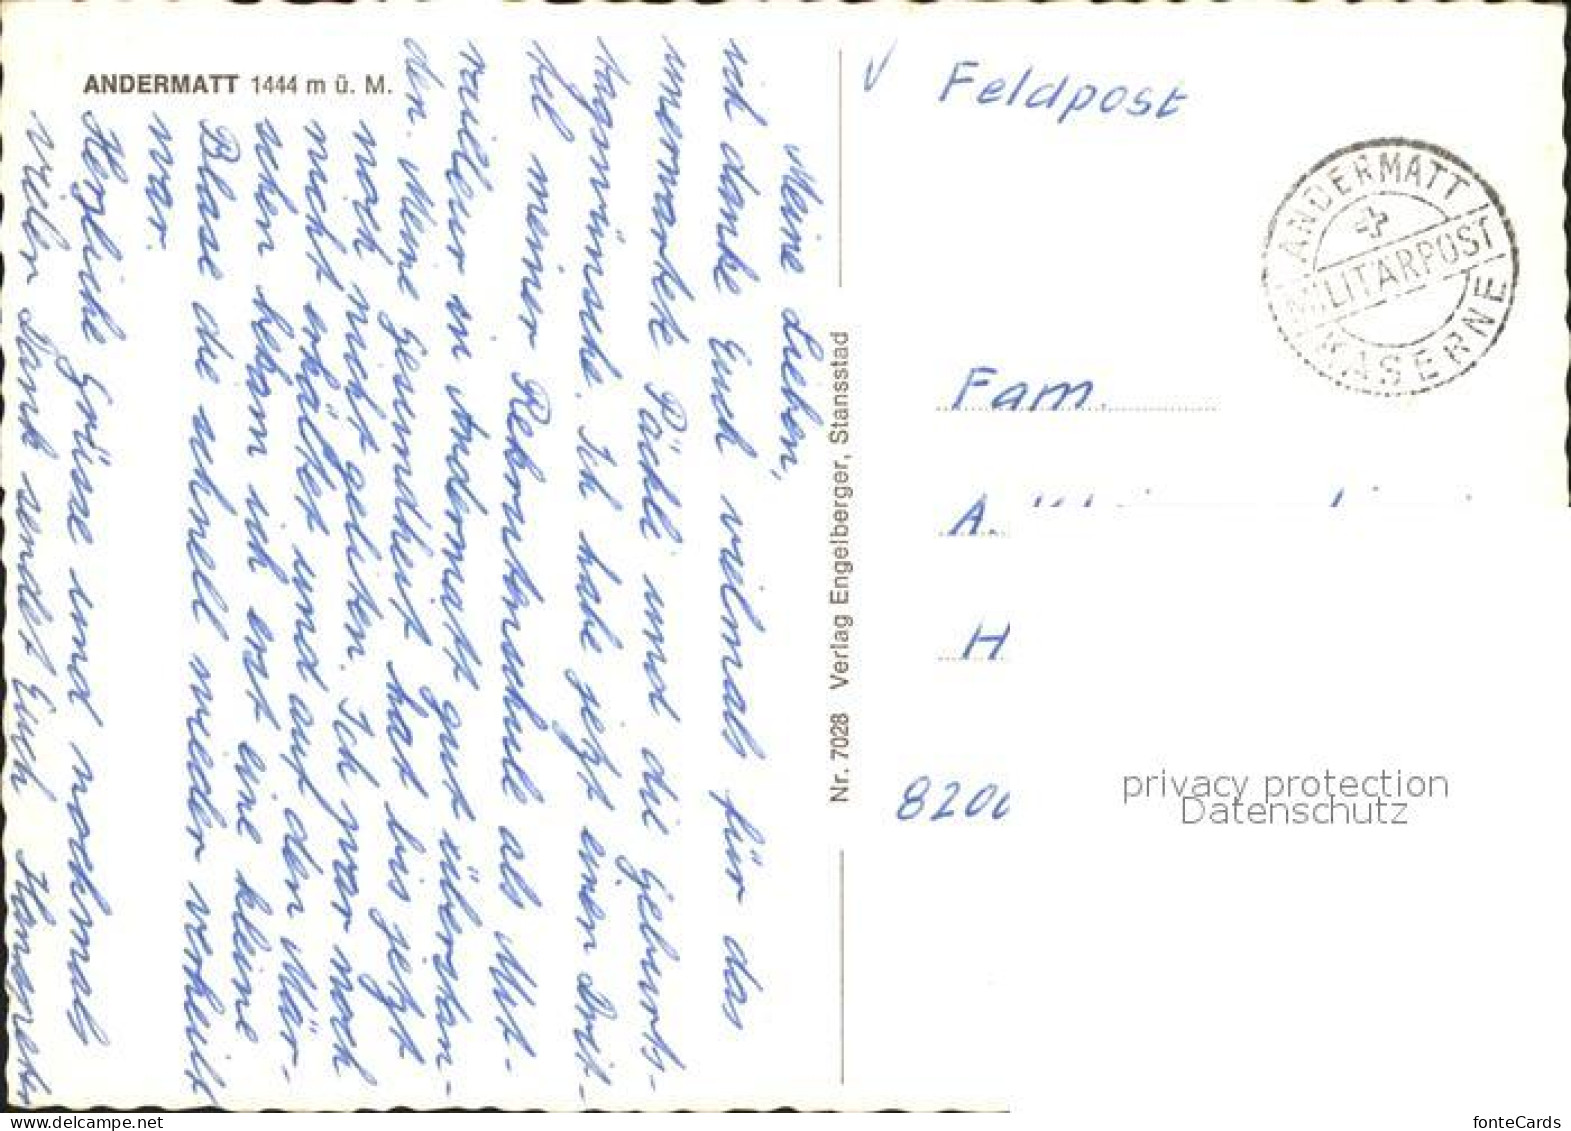 ANDERMATT 1444 m ü. M.
Meine Lieben,
ich danke Euch vielmals für das
unerwartete Päckli und die Geburts-
tagswünsche. Ich habe jetzt einen Drit-
tel meiner Rekrutenschule als Mit-
railleur in Andermatt gut überstan-
den. Meine Gesundheit hat bis jetzt
noch nicht gelitten. Ich war noch
nicht erkältet und auf den Mär-
schen bekam ich erst eine kleine
Blase die schnell wieder verheilt
war.
Herzliche Grüsse und nochmals
vielen Dank sendet Euch
Nr. 7028 Verlag Engelberger, Stansstad
Feldpost
ANDERMATT
MILITÄRPOST
KASERNE
Fam.
A.
H
8200
privacy protection
Datenschutz
delcampe.net
fonteCards